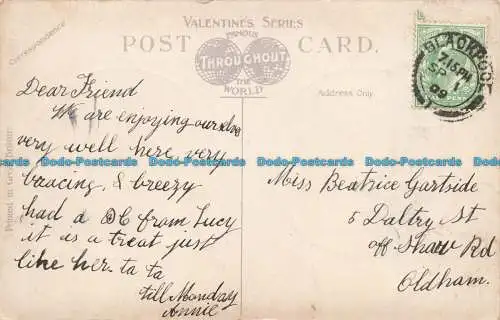 VALENTINE'S SERIES
FAMOUS
POST CARD.
THROUGHOUT
THE
WORLD
Correspondence
Address Only.
BLACKPOOL
7.15PM
SP 1
09
Dear Friend
We are enjoying ourselves
very well here, very
bracing, & breezy
had a PC from Lucy
it is a treat just
like her. ta ta
till Monday
Annie
Miss Beatrice Gartside
5 Daltry St
off Shaw Rd
Oldham.
Printed in Great Britain
Dodo-Postcards Dodo-Postcards Dodo-Postcards Dodo-Postcards Dodo-Postcards